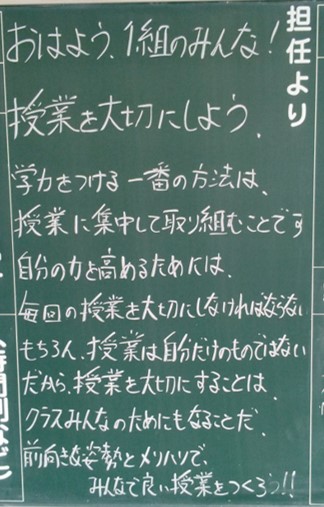 担任より
おはよう、1組のみんな!
授業を大切にしよう、
学力をつける一番の方法は、
授業に集中して取り組むことです
自分の力を高めるためには、
毎回の授業を大切にしなければならない
もちろん、授業は自分だけのものではない
だから、授業を大切にすることは、
クラスみんなのためにもなることだ、
前向きな姿勢とメリハリで、
みんなで良い授業をつくろう!!